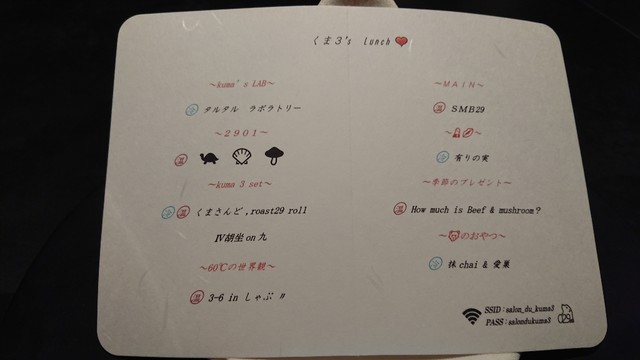 くま3's lunch
～kuma's LAB～
冷 タルタル ラボラトリー
～2901～
温
～kuma 3 set～
冷 温 くまさんど,roast29 roll
Ⅳ胡坐 on 九
～60℃の世界観～
温 3-6 in しゃぶ〃
～MAIN～
温 SMB29
～ ～
冷 有りの実
～季節のプレゼント～
温 How much is Beef & mushroom？
～ のおやつ～
冷 抹 chai & 愛巣
SSID：salon_du_kuma3
PASS：salondukuma3
29